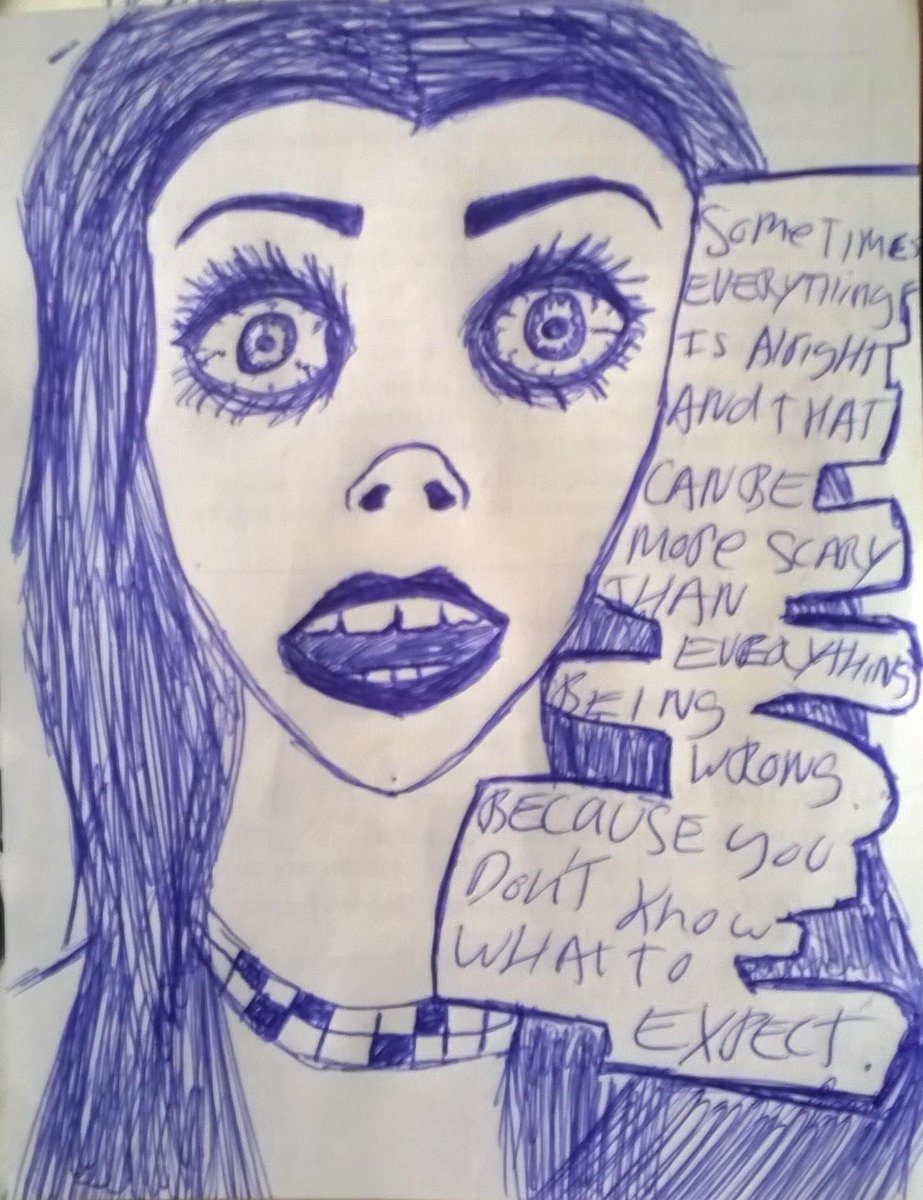 SomeTIMES
EVERYThing
IS AlrigHT
ANd THAT
CAN BE
More SCARY
THAN
EVERYTHING
BEING
WRONG
BECAUSE YOU
Don'T Know
WHAT TO
EXPECT.